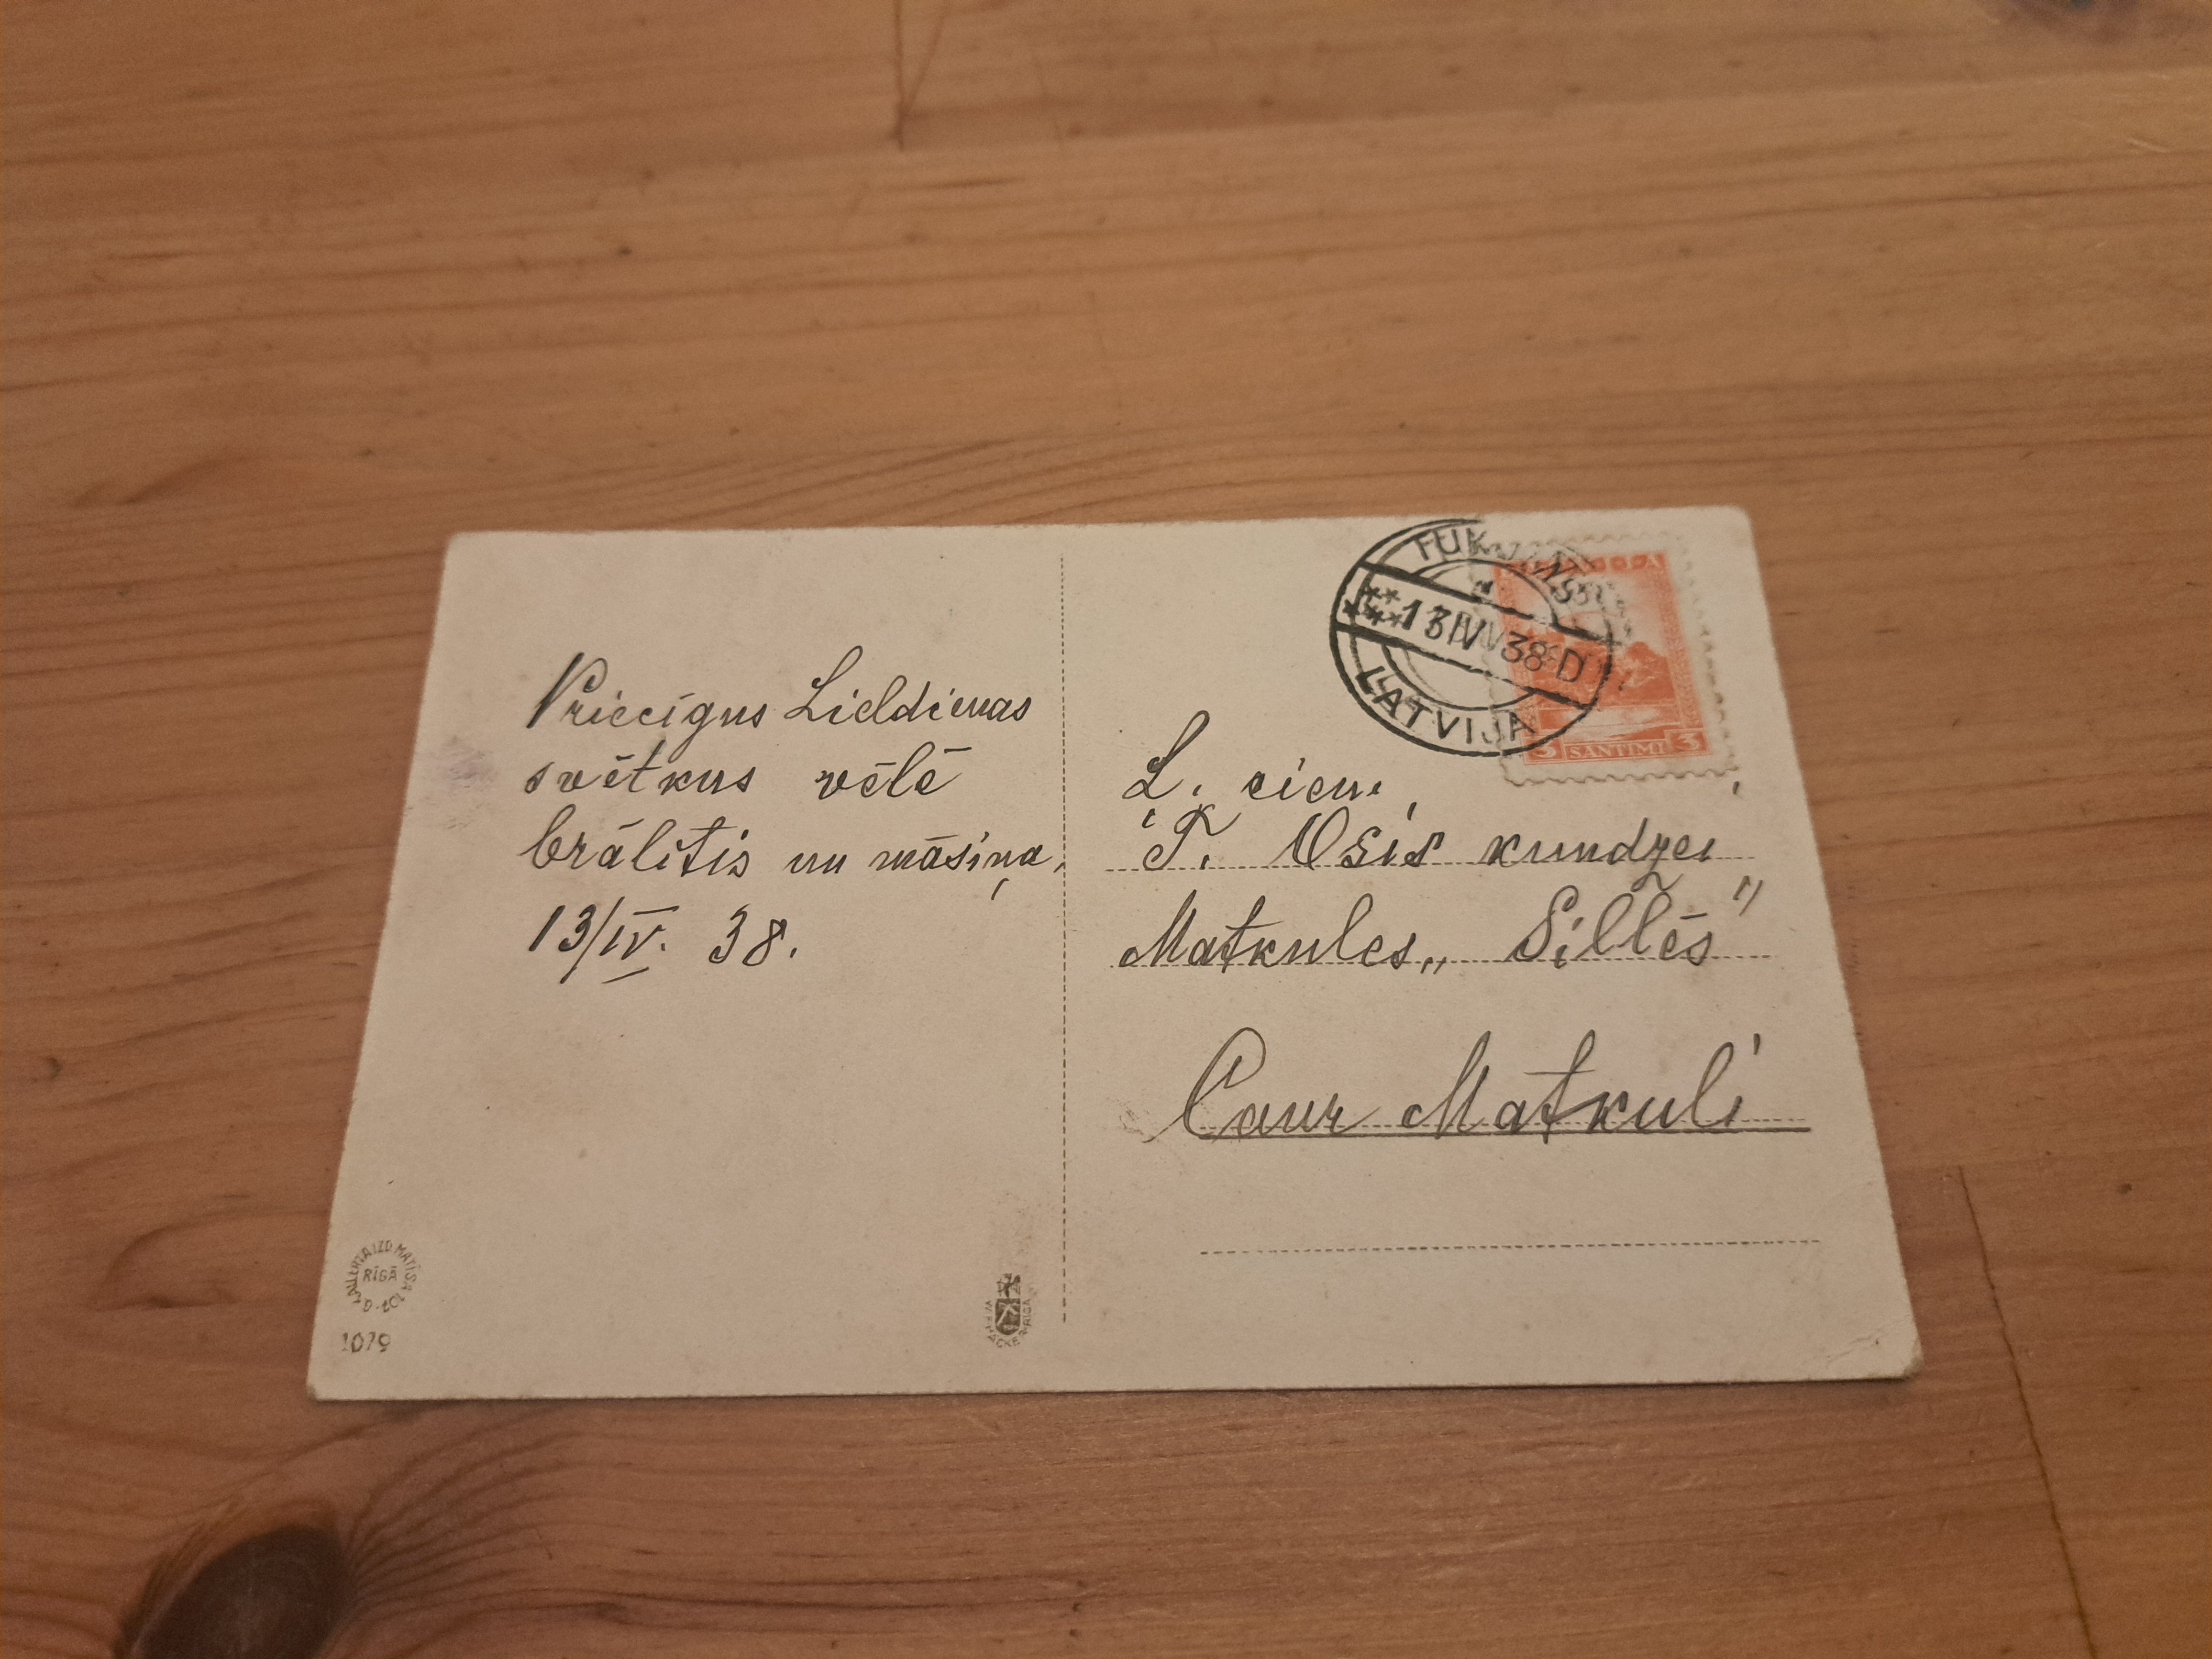 Priecīgus Lieldienas
svētkus vēlē
brālītis un māsiņa.
13/IV. 38.
RĪGĀ
1079
TUKUMS
13 IV 38 D
LATVIJA
3 SANTIMI 3
L. cien.
T. Osis kundzei
Matkules „Sillēs"
Caur Matkuli